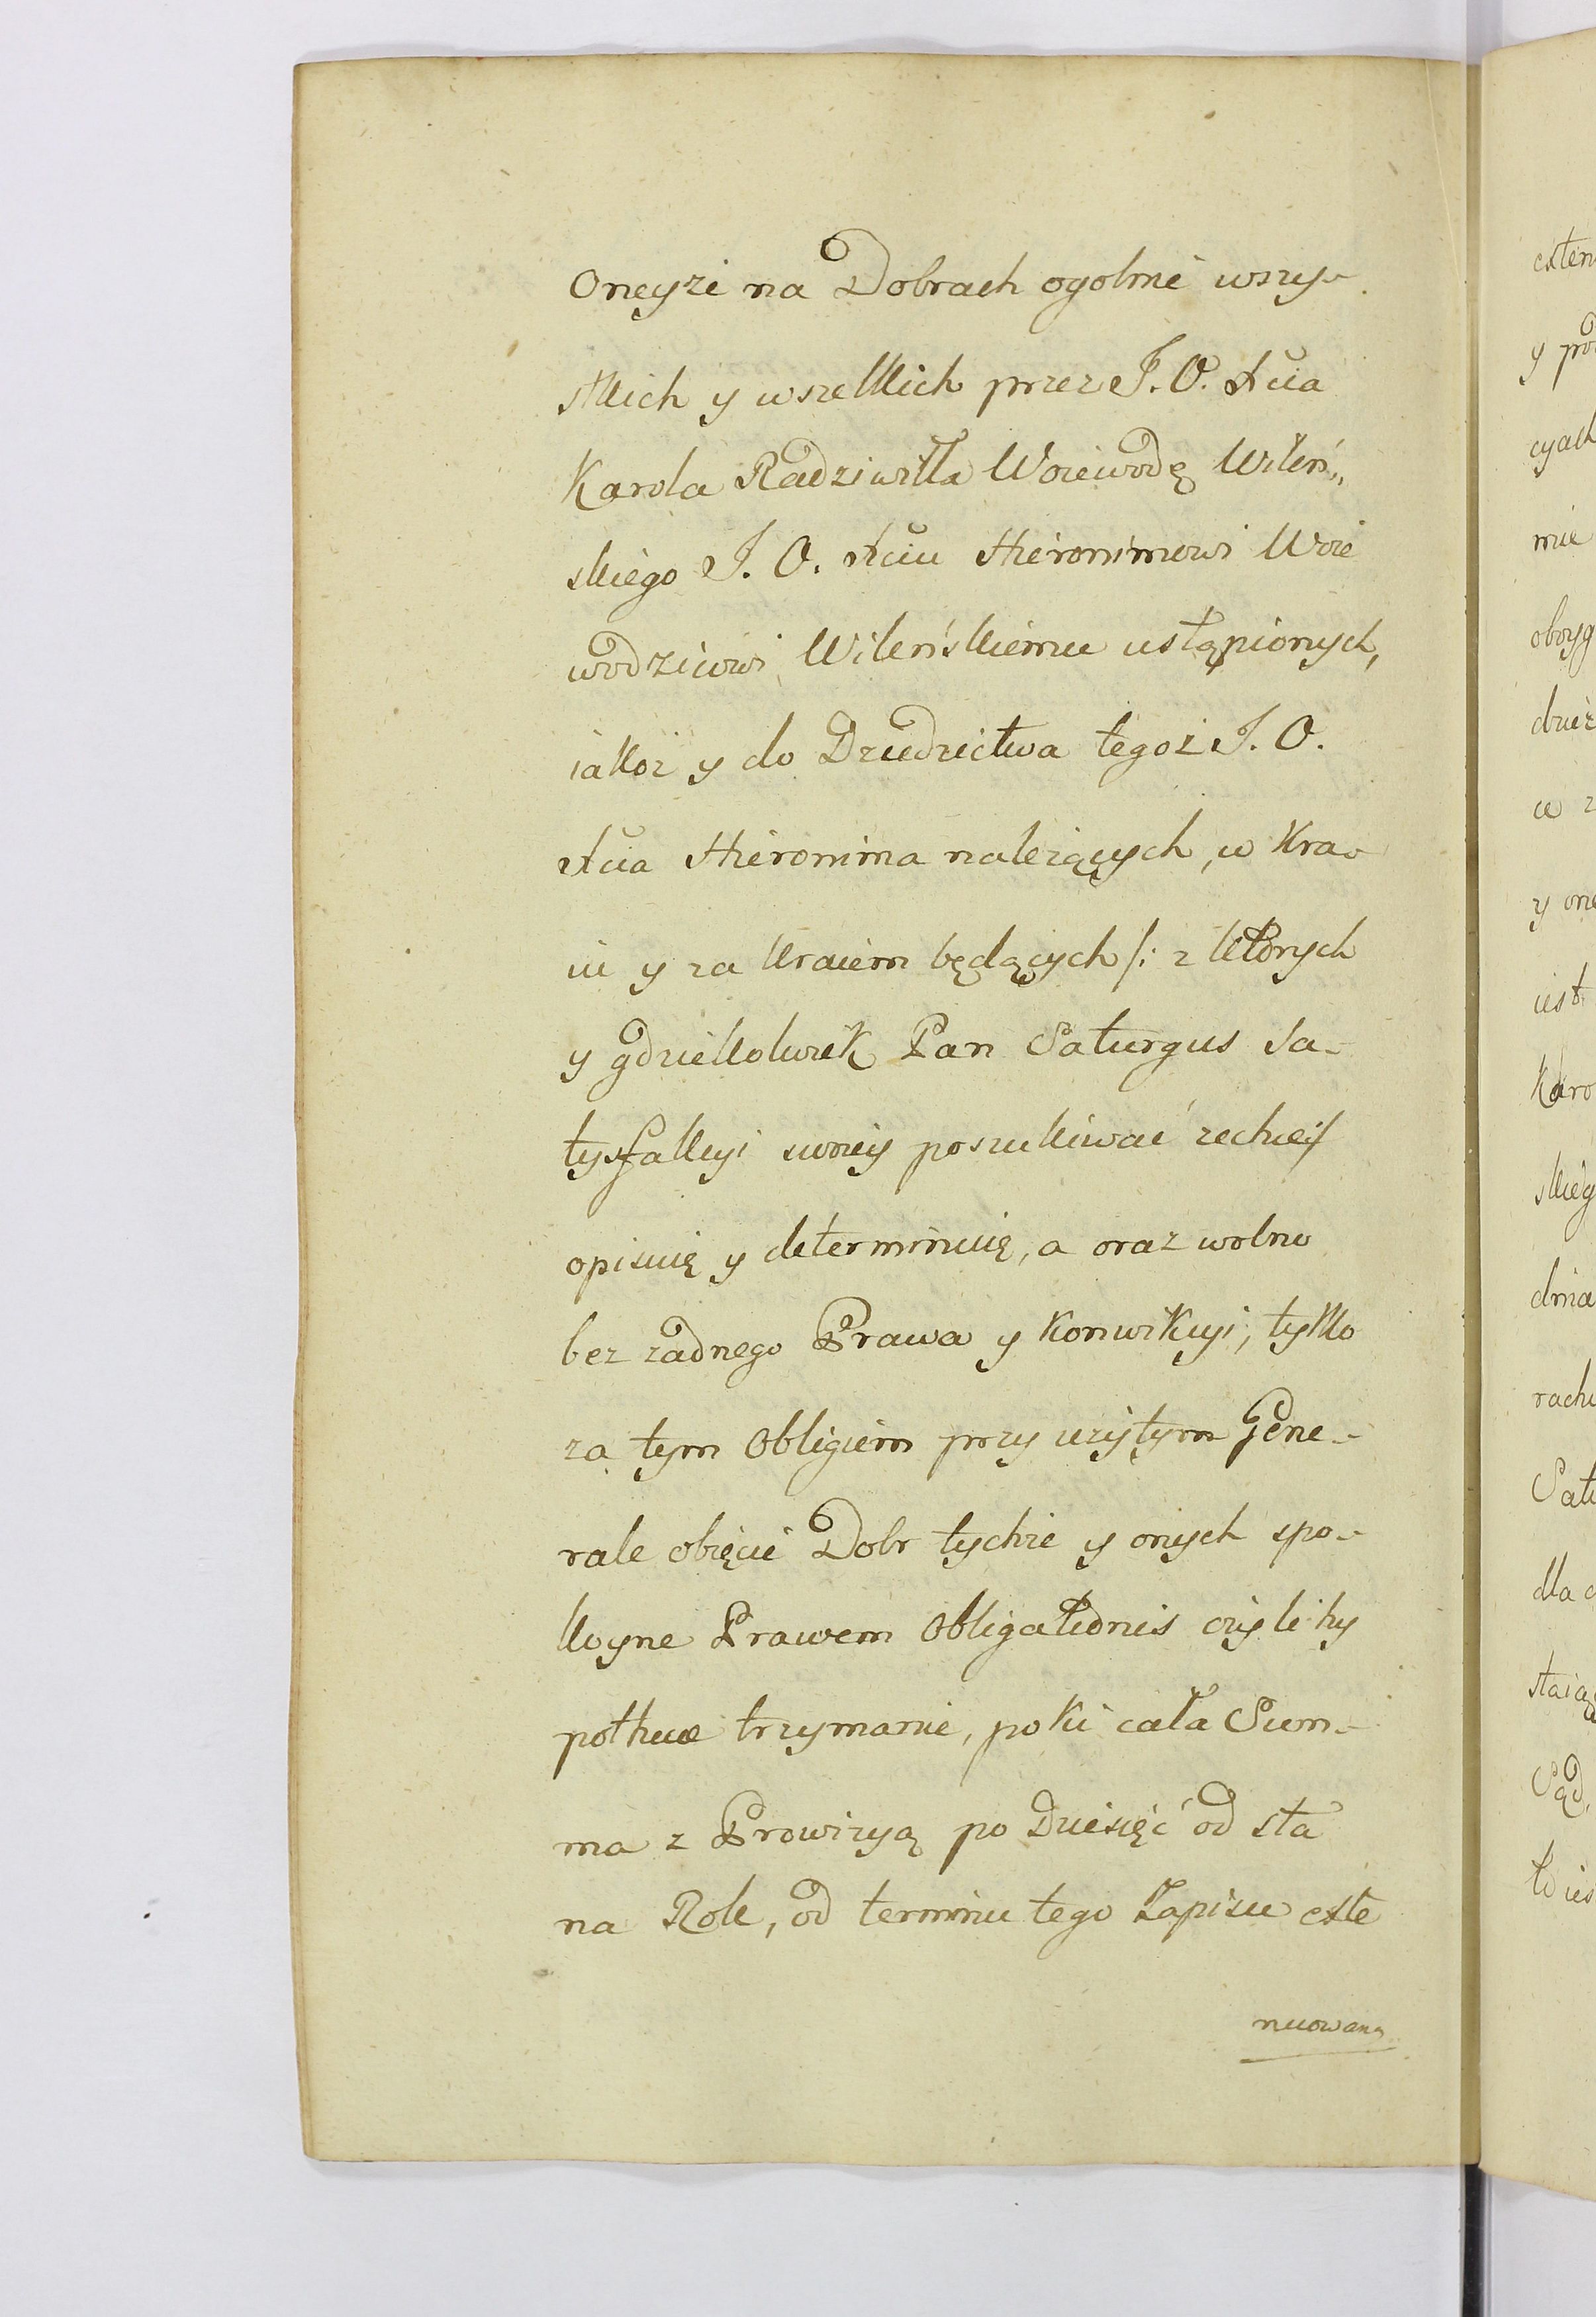 Oneyże na Dobrach ogolnie wszy-
stkich y wszelkich przez J. O. Xcia
Karola Radziwiłła Woiewodę Wileń„
skiego J. O. Xciu Hieronimowi Woie
wodzicowi Wileńskiemu ustąpionych,
iakoż y do Dziedzictwa tegoż J. O.
Xcia Hieronima należących, w Kra-
iu y za kraiem będących /: z ktorych
y gdziekolwiek Pan Saturgus Sa-
tysfakcyi swoiey poszukiwać zechce :/
opisuię y determinuię, a oraz wolno
bez żadnego Prawa y Konwikcyi, tylko
za tym Obligiem przy użytym Gene-
rale obięcie Dobr tychże y onych spo-
koyne Prawem Obligationis czyli hy
potheca trzymanie, poki cała Sum-
ma z Prowizyą po Dziesięć od sta
na Rok, od terminu tego Zapisu exte
nuowana
exten
y po
cyach
mie
obryg
dzież
ce
y one
iest
Karo
skieg
dnia
rachu
Satu
dla
staią
Sąd
to ies